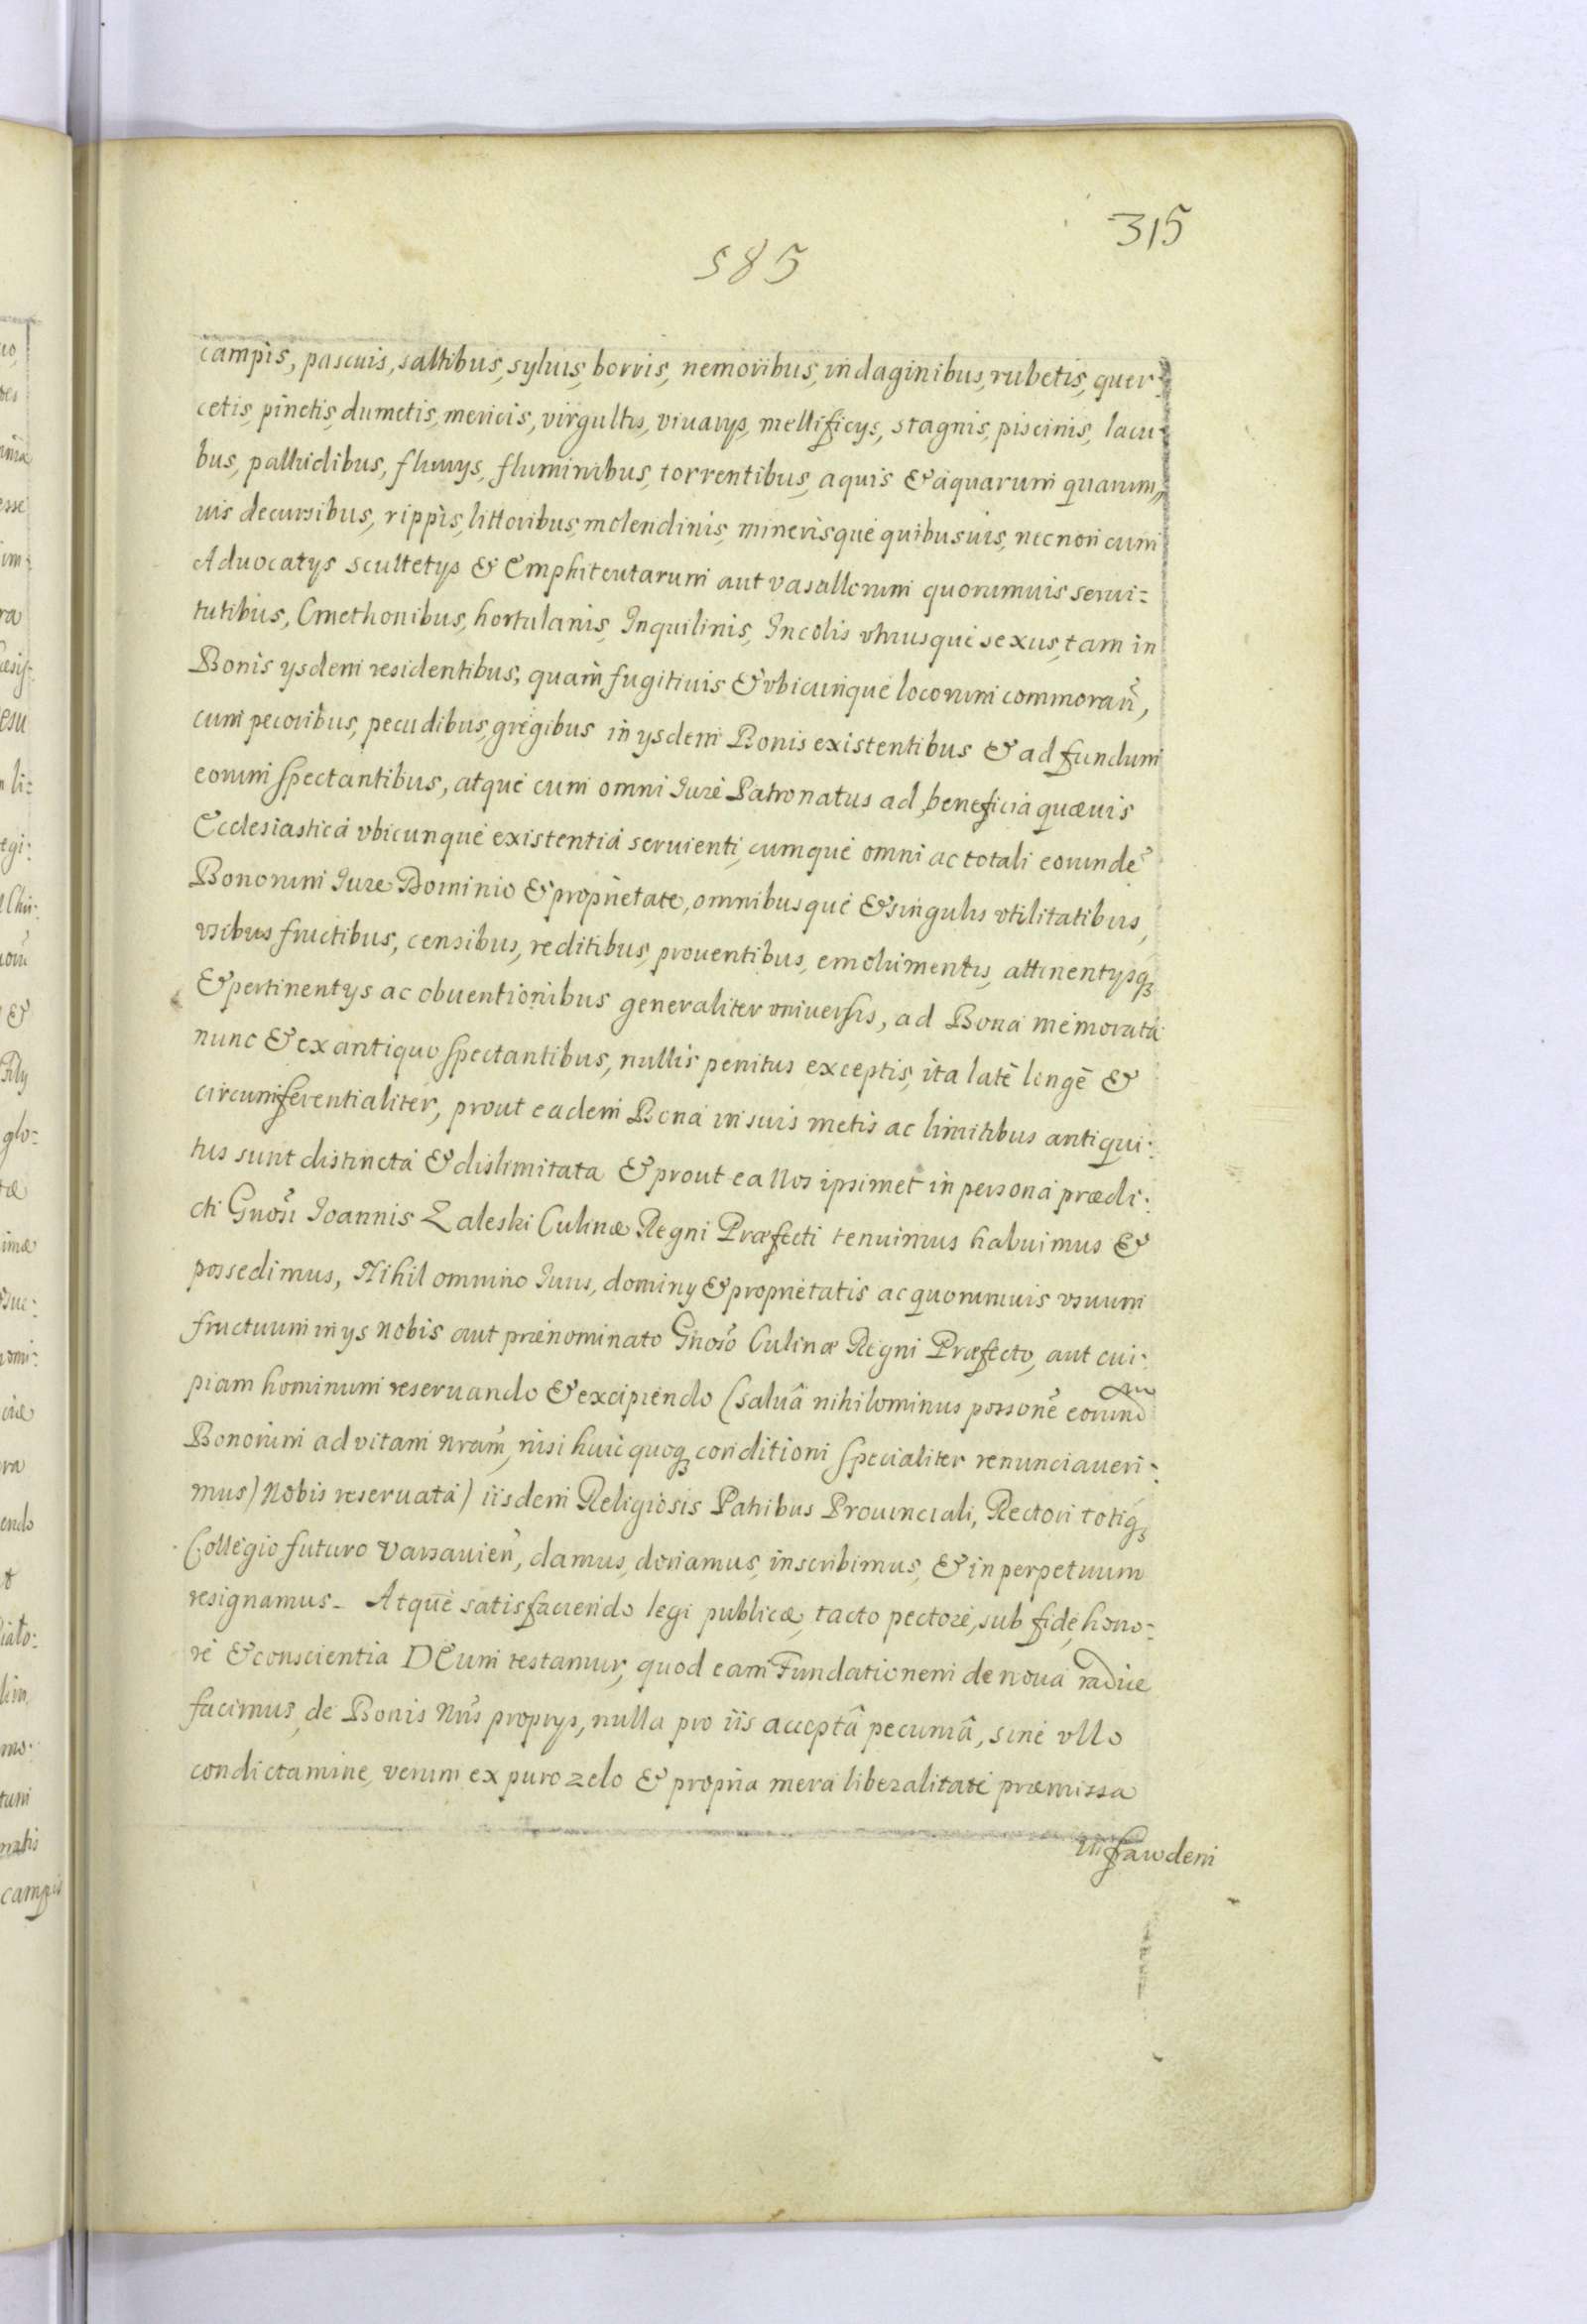 315
585
campis, pascuis, saltibus, syluis, borris, nemoribus, indaginibus, rubetis, quer-
cetis, pinetis, dumetis, mericis, virgultis, viuarys, mellificys, stagnis, piscinis, lacu-
bus, palludibus, fluuys, fluminibus, torrentibus, aquis & aquarum quarum„
uis decursibus, rippis, littoribus, molendinis, minerisque quibusuis, necnon cum
Aduocatys scultetys & Emphiteutarum aut vasallorum quorumuis serui:
tutibus, Cmethonibus, hortulanis, Inquilinis, Incolis vtriusque sexus, tam in
Bonis ysdem residentibus, quam fugitiuis & vbicunque locorum commorañ,
cum pecoribus, pecudibus, gregibus in ysdem Bonis existentibus & ad fundum
eorum spectantibus, atque cum omni Iure Patronatus ad beneficia quæuis
Ecclesiastica vbicunque existentia seruienti, cumque omni ac totali eorunde~
Bonorum Iure Dominio & proprietate, omnibusque & singulis vtilitatibus,
vsibus fructibus, censibus, reditibus, prouentibus, emolumentis, attinentysq;
& pertinentys ac obuentionibus generaliter vniuersis, ad Bona memorata
nunc & ex antiquo spectantibus, nullis penitus exceptis, ita latè longè &
circumferentialiter, prout eadem Bona in suis metis ac limitibus antiqui:
tus sunt distincta & dislimitata & prout ea Nos ipsimet in persona prædi:
cti Gnosi Ioannis Zaleski Culinæ Regni Præfecti tenuimus habuimus &
possedimus, Nihil omnino Iuris, dominy & proprietatis ac quorumuis vsuum
fructuum in ys nobis aut prænominato Gnoso Culinæ Regni Præfecto, aut cui:
piam hominum reseruando & excipiendo (saluâ nihilominus possone~ eorund
em
Bonorum ad vitam nram, nisi huic quoq; conditioni specialiter renunciaueri:
mus) Nobis reseruata) iisdem Religiosis Patribus Prouinciali, Rectori totiq;
Collegio futuro Varsauien~, damus, donamus, inscribimus, & in perpetuum
resignamus. Atque satisfaciendo legi publicæ, tacto pectore, sub fide, hono:
re & conscientia DEum testamur, quod eam Fundationem de noua radice
facimus, de Bonis Nris proprys, nulla pro iis acceptâ pecuniâ, sine vllo
condictamine, verum ex puro zelo & propria mera liberalitate præmissa